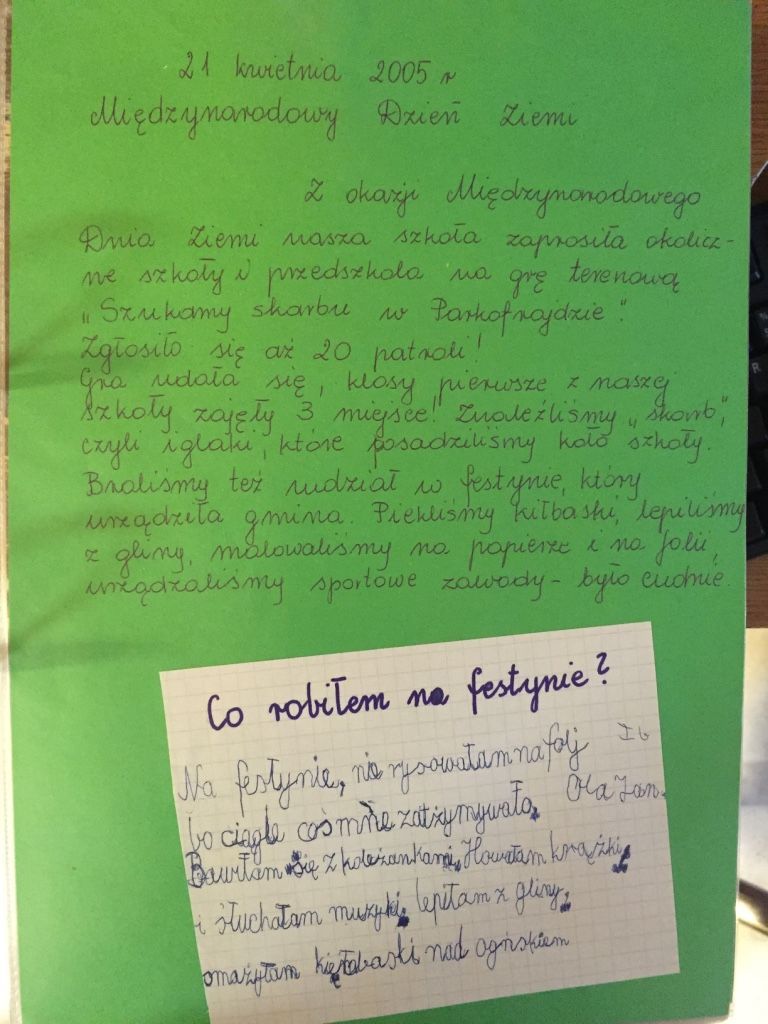 21 kwietnia 2005 r
Międzynarodowy Dzień Ziemi
Z okazji Międzynarodowego
Dnia Ziemi nasza szkoła zaprosiła okolicz-
ne szkoły i przedszkola na grę terenową
„Szukamy skarbu w Parkofrajdzie".
Zgłosiło się aż 20 patroli!
Gra udała się, klasy pierwsze z naszej
szkoły zajęły 3 miejsce! Znaleźliśmy „skarb",
czyli iglaki, które posadziliśmy koło szkoły.
Braliśmy też udział w festynie, który
urządziła gmina. Piekliśmy kiłbaski, lepiliśmy
z gliny, malowaliśmy na papierze i na folii,
urządzaliśmy sportowe zawody - było cudnie.
Co robiłem na festynie?
Na festynie, nie rysowałam na folj I b
bo ciągle coś mnie zatżymywało, Ola Jan.
Bawiłam się z koleżankami, krążki,
i słuchałam muzyki, lepiłam z gliny,
smażyłam kiełbaski nad ogńskiem